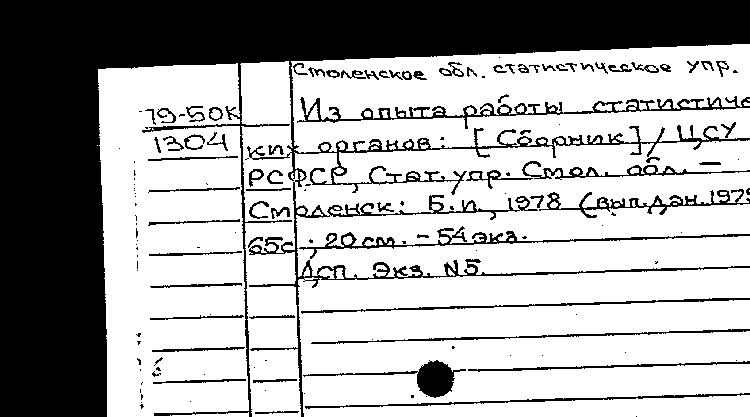 Смоленское обл. статистическое упр.
79-50к Из опыта работы статистичес
1304 ких органов: [Сборник] / ЦСУ
РСФСР, Стат. упр. Смол. обл. –
Смоленск: Б.и., 1978 (вып. дан. 1979
65с.; 20 см. – 54 экз.
Дсп. Экз. N5.